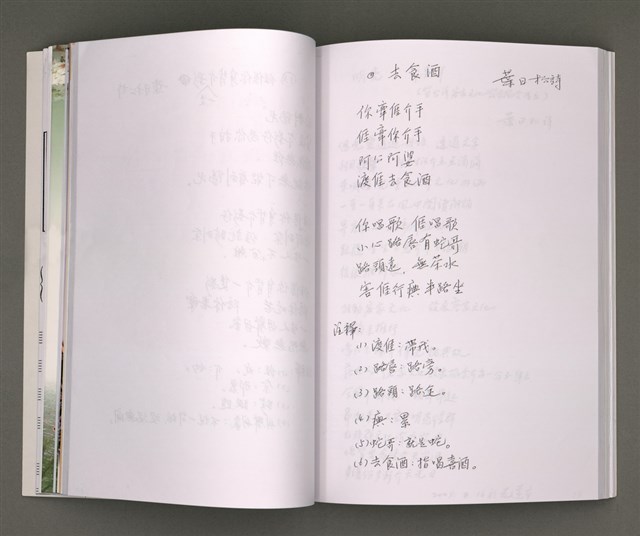 去食酒
葉日松詩
你牽𠊎个手
𠊎牽你个手
阿公阿婆
渡𠊎去食酒
你唱歌 𠊎唱歌
小心路唇有蛇哥
路頭遠,無茶水
害𠊎行𤸁半路坐
注釋:
(1)渡𠊎:帶我。
(2)路唇:路旁。
(3)路頭:路途。
(4)𤸁:累
(5)蛇哥:就是蛇。
(6)去食酒:指喝喜酒。